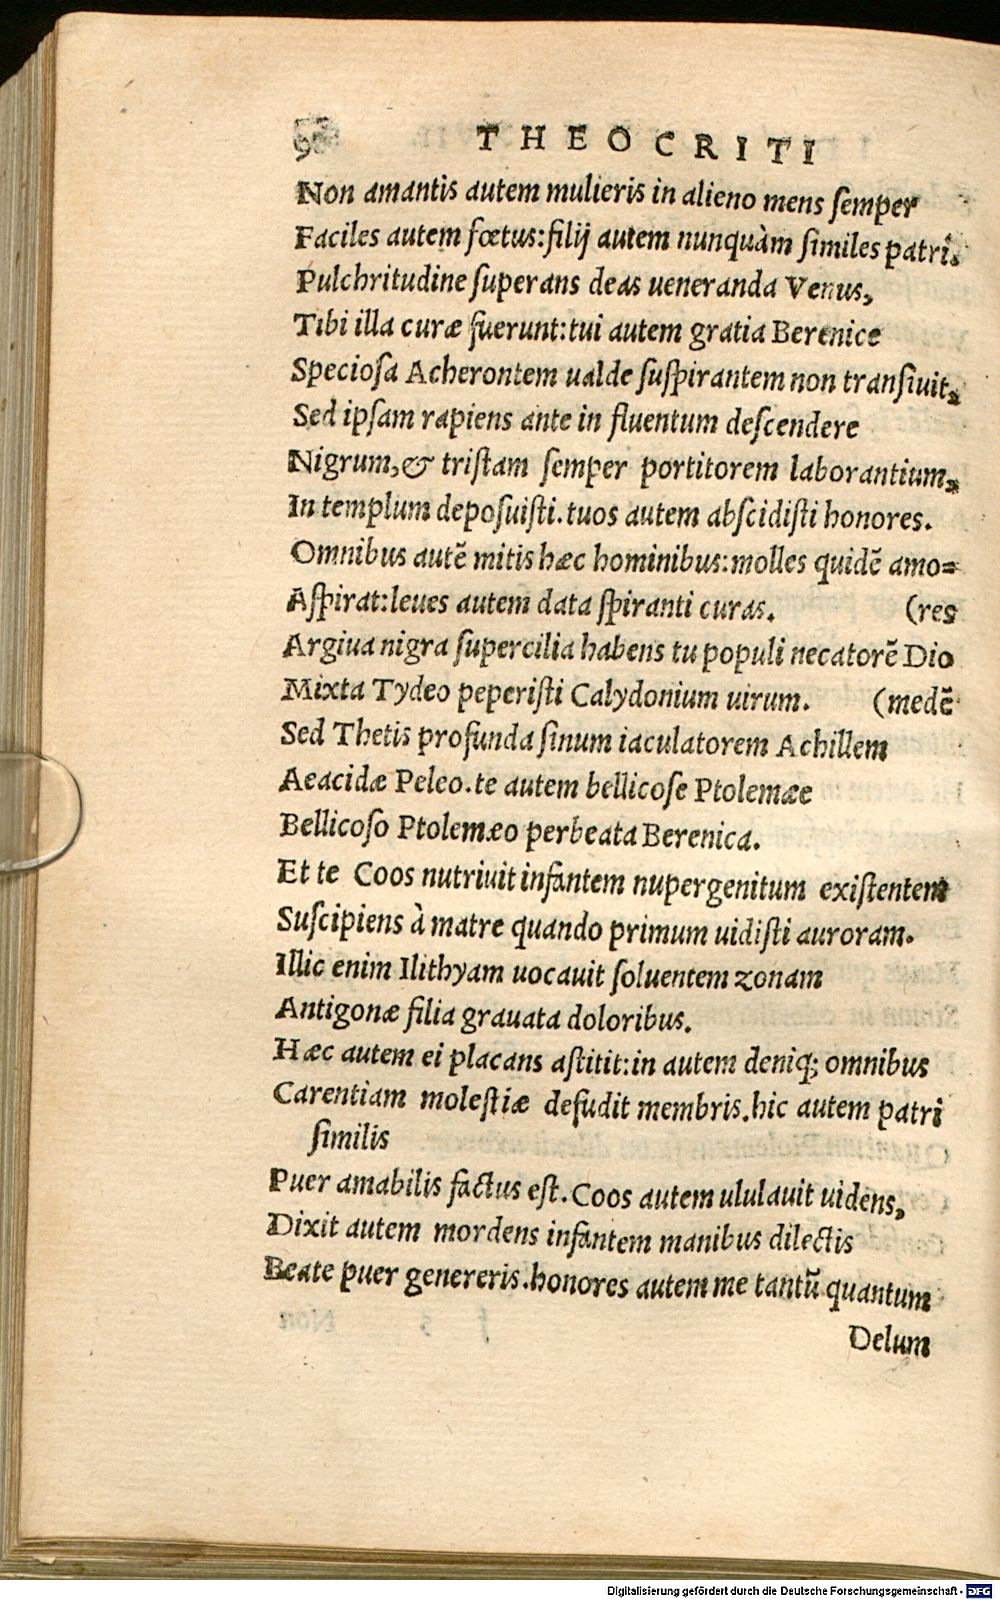 THEOCRITI
Non amantis autem mulieris in alieno mens ſemper
Faciles autem fœtus: filij autem nunquàm ſimiles patri.
Pulchritudine ſuperans deas ueneranda Venus,
Tibi illa curæ fuerunt: tui autem gratia Berenice
Specioſa Acherontem ualde ſuſpirantem non tranſiuit,
Sed ipſam rapiens ante in fluentum deſcendere
Nigrum, & triſtam ſemper portitorem laborantium,
In templum depoſuiſti. tuos autem abſcidiſti honores.
Omnibus autē mitis hæc hominibus: molles quidē amo=
Aſpirat: leues autem data ſpiranti curas. (res
Argiua nigra ſupercilia habens tu populi necatorē Dio
Mixta Tydeo peperiſti Calydonium uirum. (medē
Sed Thetis profunda ſinum iaculatorem Achillem
Aeacidæ Peleo. te autem bellicoſe Ptolemæe
Bellicoſo Ptolemæo perbeata Berenica.
Et te Coos nutriuit infantem nuper genitum exiſtentem
Suſcipiens à matre quando primum uidiſti auroram.
Illic enim Ilithyam uocauit ſoluentem zonam
Antigonæ filia grauata doloribus.
Hæc autem ei placans aſtitit: in autem deniq; omnibus
Carentiam moleſtiæ defudit membris. hic autem patri
ſimilis
Puer amabilis factus eſt. Coos autem ululauit uidens,
Dixit autem mordens infantem manibus dilectis
Beate puer genereris. honores autem me tantū quantum
Delum
Digitalisierung gefördert durch die Deutsche Forschungsgemeinschaft - DFG